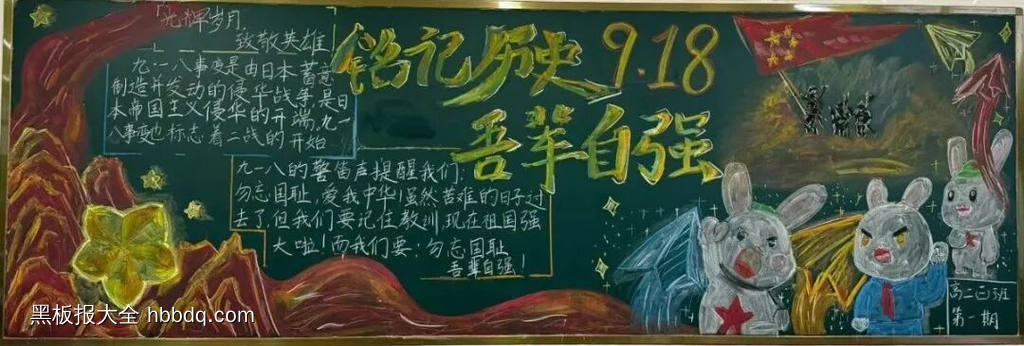 光辉岁月
致敬英雄
铭记历史 9.18
吾辈自强
九一八事变是由日本蓄意
制造并发动的侵华战争,是日
本帝国主义侵华的开端,九一
八事变也标志着二战的开始
九一八的警笛声提醒我们:
勿忘国耻,爱我中华!虽然苦难的日子过
去了,但我们要记住教训,现在祖国强
大啦!而我们要:勿忘国耻
吾辈自强!
第一期
黑板报大全 hbbdq.com